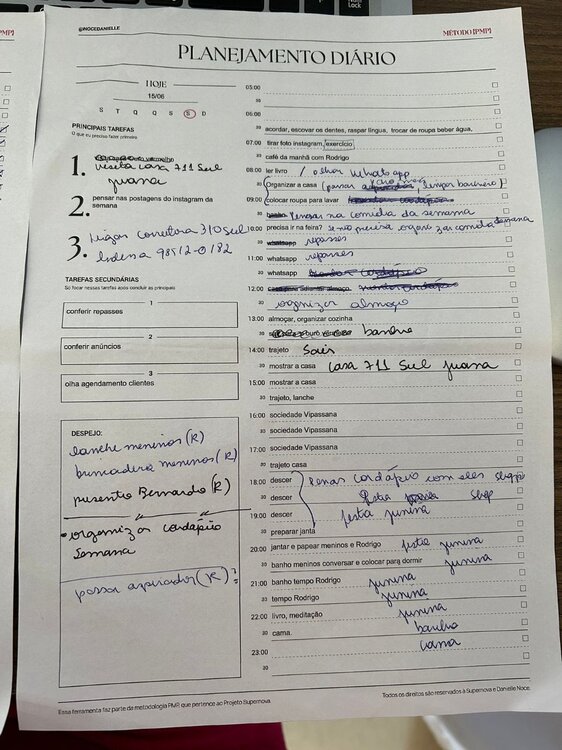 @NOCEDANIELLE
MÉTODO [PMP]
PLANEJAMENTO DIÁRIO
HOJE
15/06
S T Q Q S S D
PRINCIPAIS TAREFAS
O que eu preciso fazer primeiro
1.
visita casa 711 Sul
juana
2. pensar nas postagens do instagram da
semana
3. corretora 310 Sul
98512-0182
TAREFAS SECUNDÁRIAS
Só focar nessas tarefas após concluir as principais
1
conferir repasses
2
conferir anúncios
3
olha agendamento clientes
DESPEJO:
lanche meninos (R)
brincadeira meninos (R)
presente Bernardo (R)
organizar cardápio
semana
passar aspirador (R) ?
05:00
30
06:00
30 acordar, escovar os dentes, raspar língua, trocar de roupa beber água,
07:00 tirar foto instagram, exercício
30 café da manhã com Rodrigo
08:00 ler livro / olhar whatsapp
30 Organizar a casa (passar limpar banheiro)
09:00 colocar roupa para lavar
30 Pensar na comida da semana
10:00 precisa ir na feira? se não precisa organizar comida semana
30 whatsapp repasses
11:00 whatsapp repasses
30 whatsapp
12:00
30 organizar almoço
13:00 almoçar, organizar cozinha
30 banho
14:00 trajeto Sair
30 mostrar a casa casa 711 Sul juana
15:00 mostrar a casa
30 trajeto, lanche
16:00 sociedade Vipassana
30 sociedade Vipassana
17:00 sociedade Vipassana
30 trajeto casa
18:00 descer pensar cardápio com eles shopp
30 descer festa shop
19:00 descer festa junina
30 preparar janta
20:00 jantar e papear meninos e Rodrigo festa junina
30 banho meninos conversar e colocar para dormir junina
21:00 banho tempo Rodrigo junina
30 tempo Rodrigo junina
22:00 livro, meditação junina
30 cama. banho
23:00 cama
30
Essa ferramenta faz parte da metodologia PMP, que pertence ao Projeto Supernova.
Todos os direitos são reservados à Supernova e Danielle Noce.